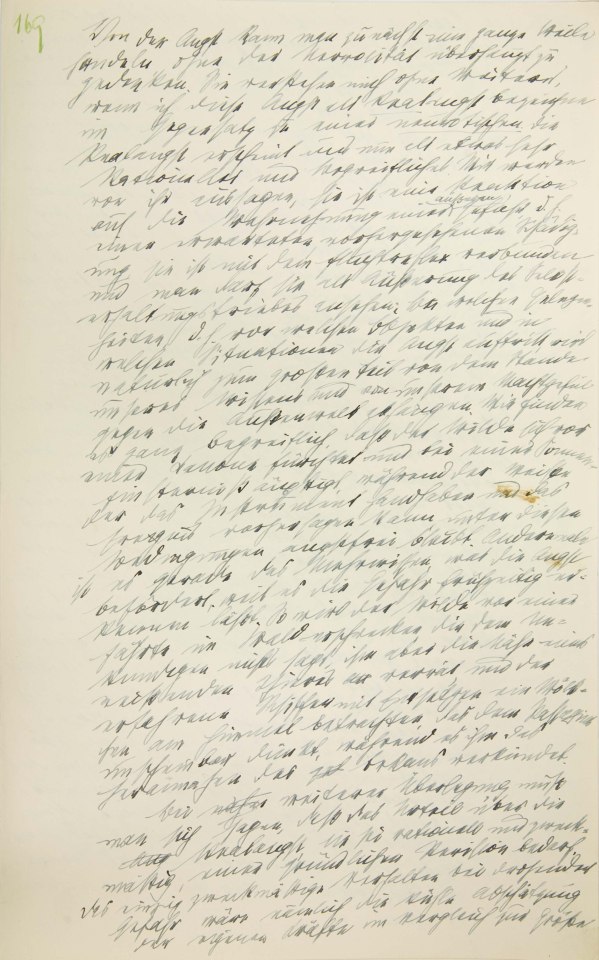 169
Von der Angst kann man zunächst eine ganze Weile
handeln ohne der Nervosität überhaupt zu
gedenken. Sie verstehen mich ohne Weiteres,
wenn ich diese Angst als Realangst bezeichne
im Gegensatz zu einer neurotischen. Die
Realangst erscheint uns nun als etwas sehr
Rationelles und Begreifliches. Wir werden
von ihr aussagen, sie ist eine Reaktion
auf die Wahrnehmung einer äußeren Gefahr d. h.
einer erwarteten vorhergesehenen Schädig-
ung, sie ist mit dem Fluchtreflex verbunden
und man darf sie als Äußerung des Selbst-
erhaltungstriebes ansehen. Bei welchen Gelegen-
heiten, d. h. vor welchen Objekten und in
welchen Situationen die Angst auftritt wird
natürlich zum großen Teil von dem Stande
unseres Wissens und von unserem Machtgefühl
gegen die Außenwelt abhängen. Wir finden
es ganz begreiflich daß der Wilde sich vor
einer Kanone fürchtet und bei einer Sonnen-
finsterniß ängstigt, während der weiße
der das Instrument handhaben und das
Ereignis vorhersagen kann, unter diesen
Bedingungen angstfrei bleibt. Andere male
ist es gerade das Mehrwissen, was die Angst
befördert, weil es die Gefahr frühzeitig er-
kennen läßt. So wird der Wilde vor einer
Fährte im Wald erschrecken die dem Un-
kundigen nichts sagt, ihm aber die Nähe eines
reißenden Thieres verrät und der
erfahrene Schiffer mit Entsetzen ein Wölk-
chen am Himmel betrachten, das dem Passagier
unscheinbar dünkt, während es ihm das
Herannahen des Orkans verkündet.
Bei weiterer Überlegung muß
man sich sagen, daß das Urteil über die
Realangst, sie sei rationell und zweck-
mäßig, einer gründlichen Revision bedarf.
Das einzig zweckmäßige Verhalten bei drohender
Gefahr wäre nämlich die kühle Abschätzung
der eigenen Kräfte im Vergleich zur Größe